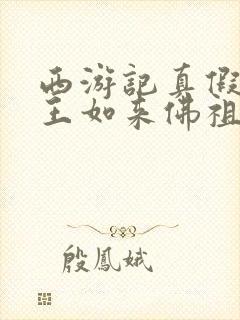 西游记真假
王如来佛祖
殷鳳娥